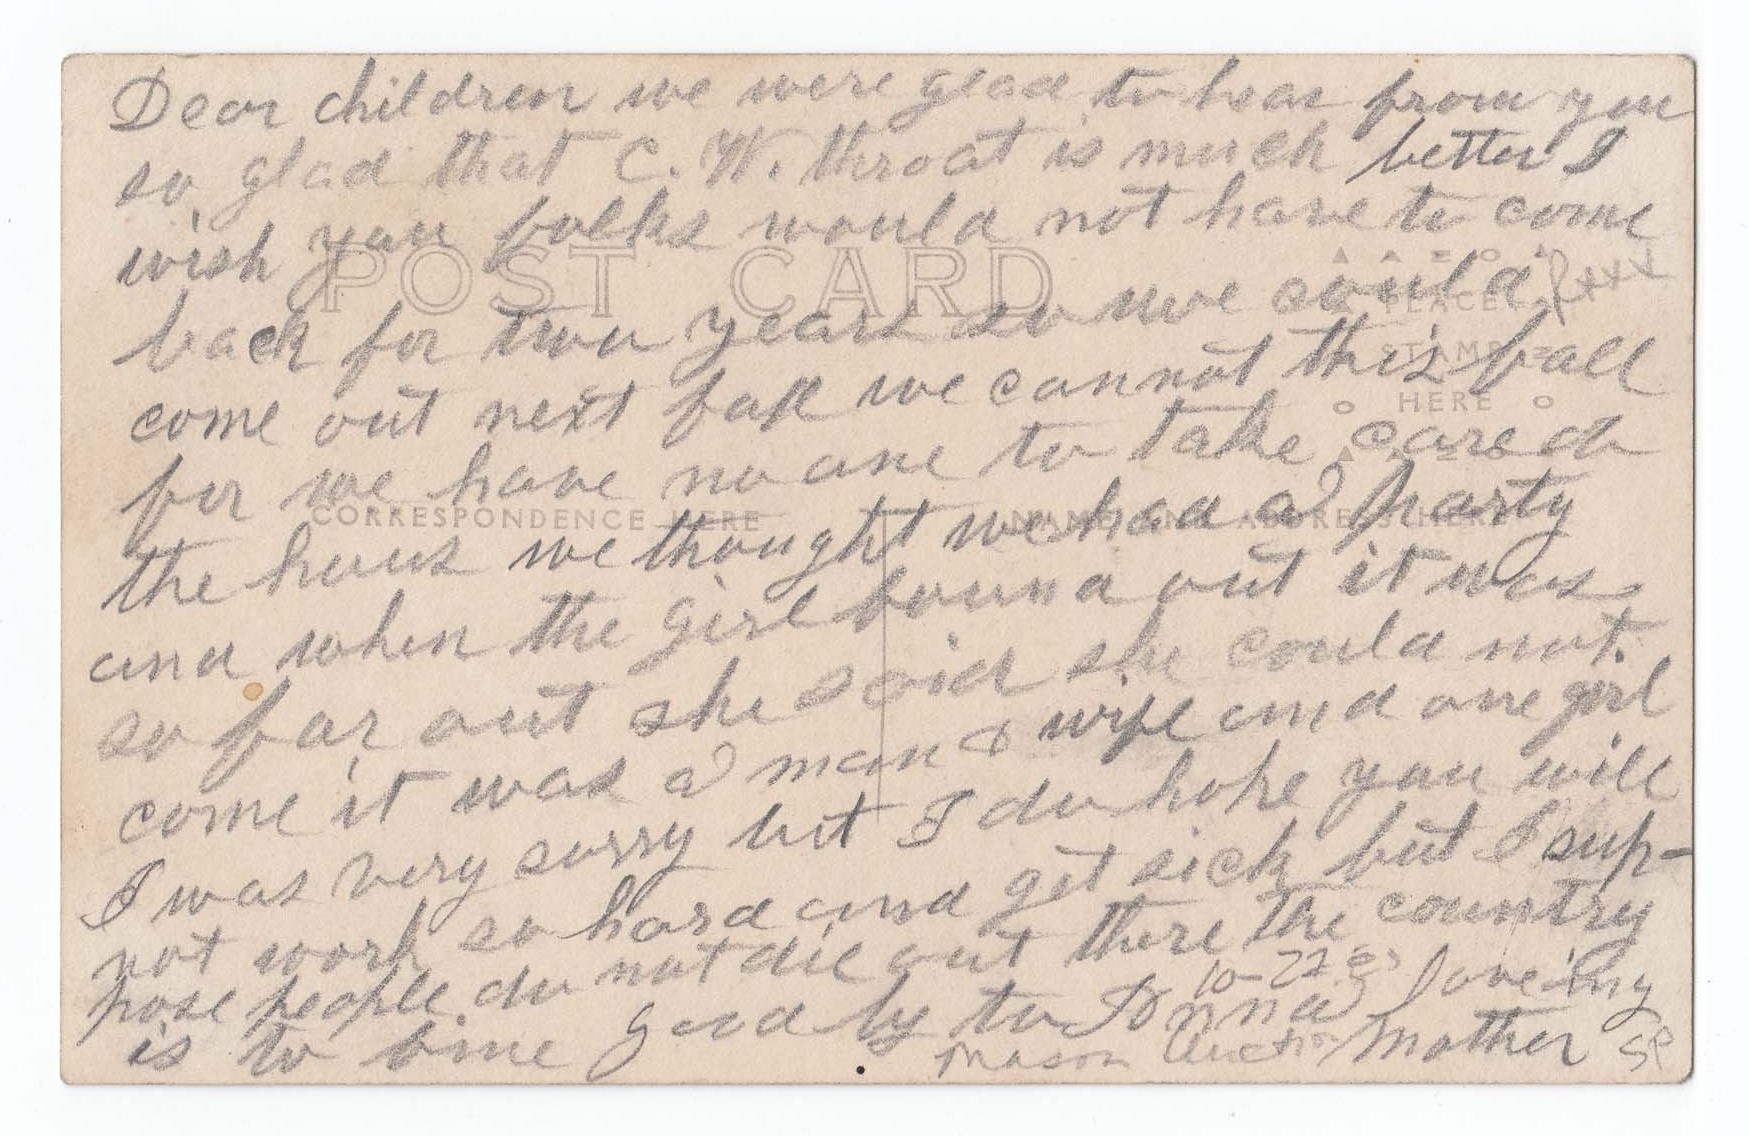 Dear children we were glad to hear from you
so glad that C. W. throat is much better I
wish you folks would not have to come
POST CARD
back for two years so we could
PLACE
STAMP
HERE
come out next fall we cannot this fall
for we have no one to take care of
CORRESPONDENCE HERE
NAME AND ADDRESS HERE
the hous we thought we had a party
and when the girl found out it was
so far out she said she could not
come it was a man & wife and one girl
I was very sorry but I do hope you will
not work so hard and get sick but I sup-
pose people do not die out there the country
is to good by to Anna loveing
Mother
10-22
Mason Auction